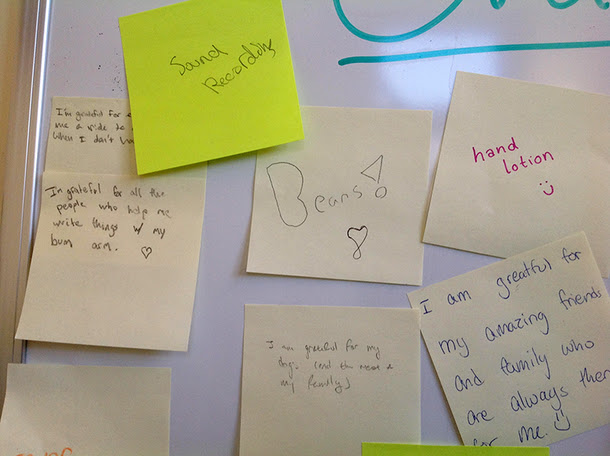 Sound
Recording
I'm grateful for
me a ride to
When I don't
In grateful for all the
people who help me
write things w/ my
bum arm. ♡
Beans!
hand
lotion
:)
I am greatful for
my amazing friends
and family who
are always ther
for me. :)
I am grateful for my
dogs (and the rest of
my family)